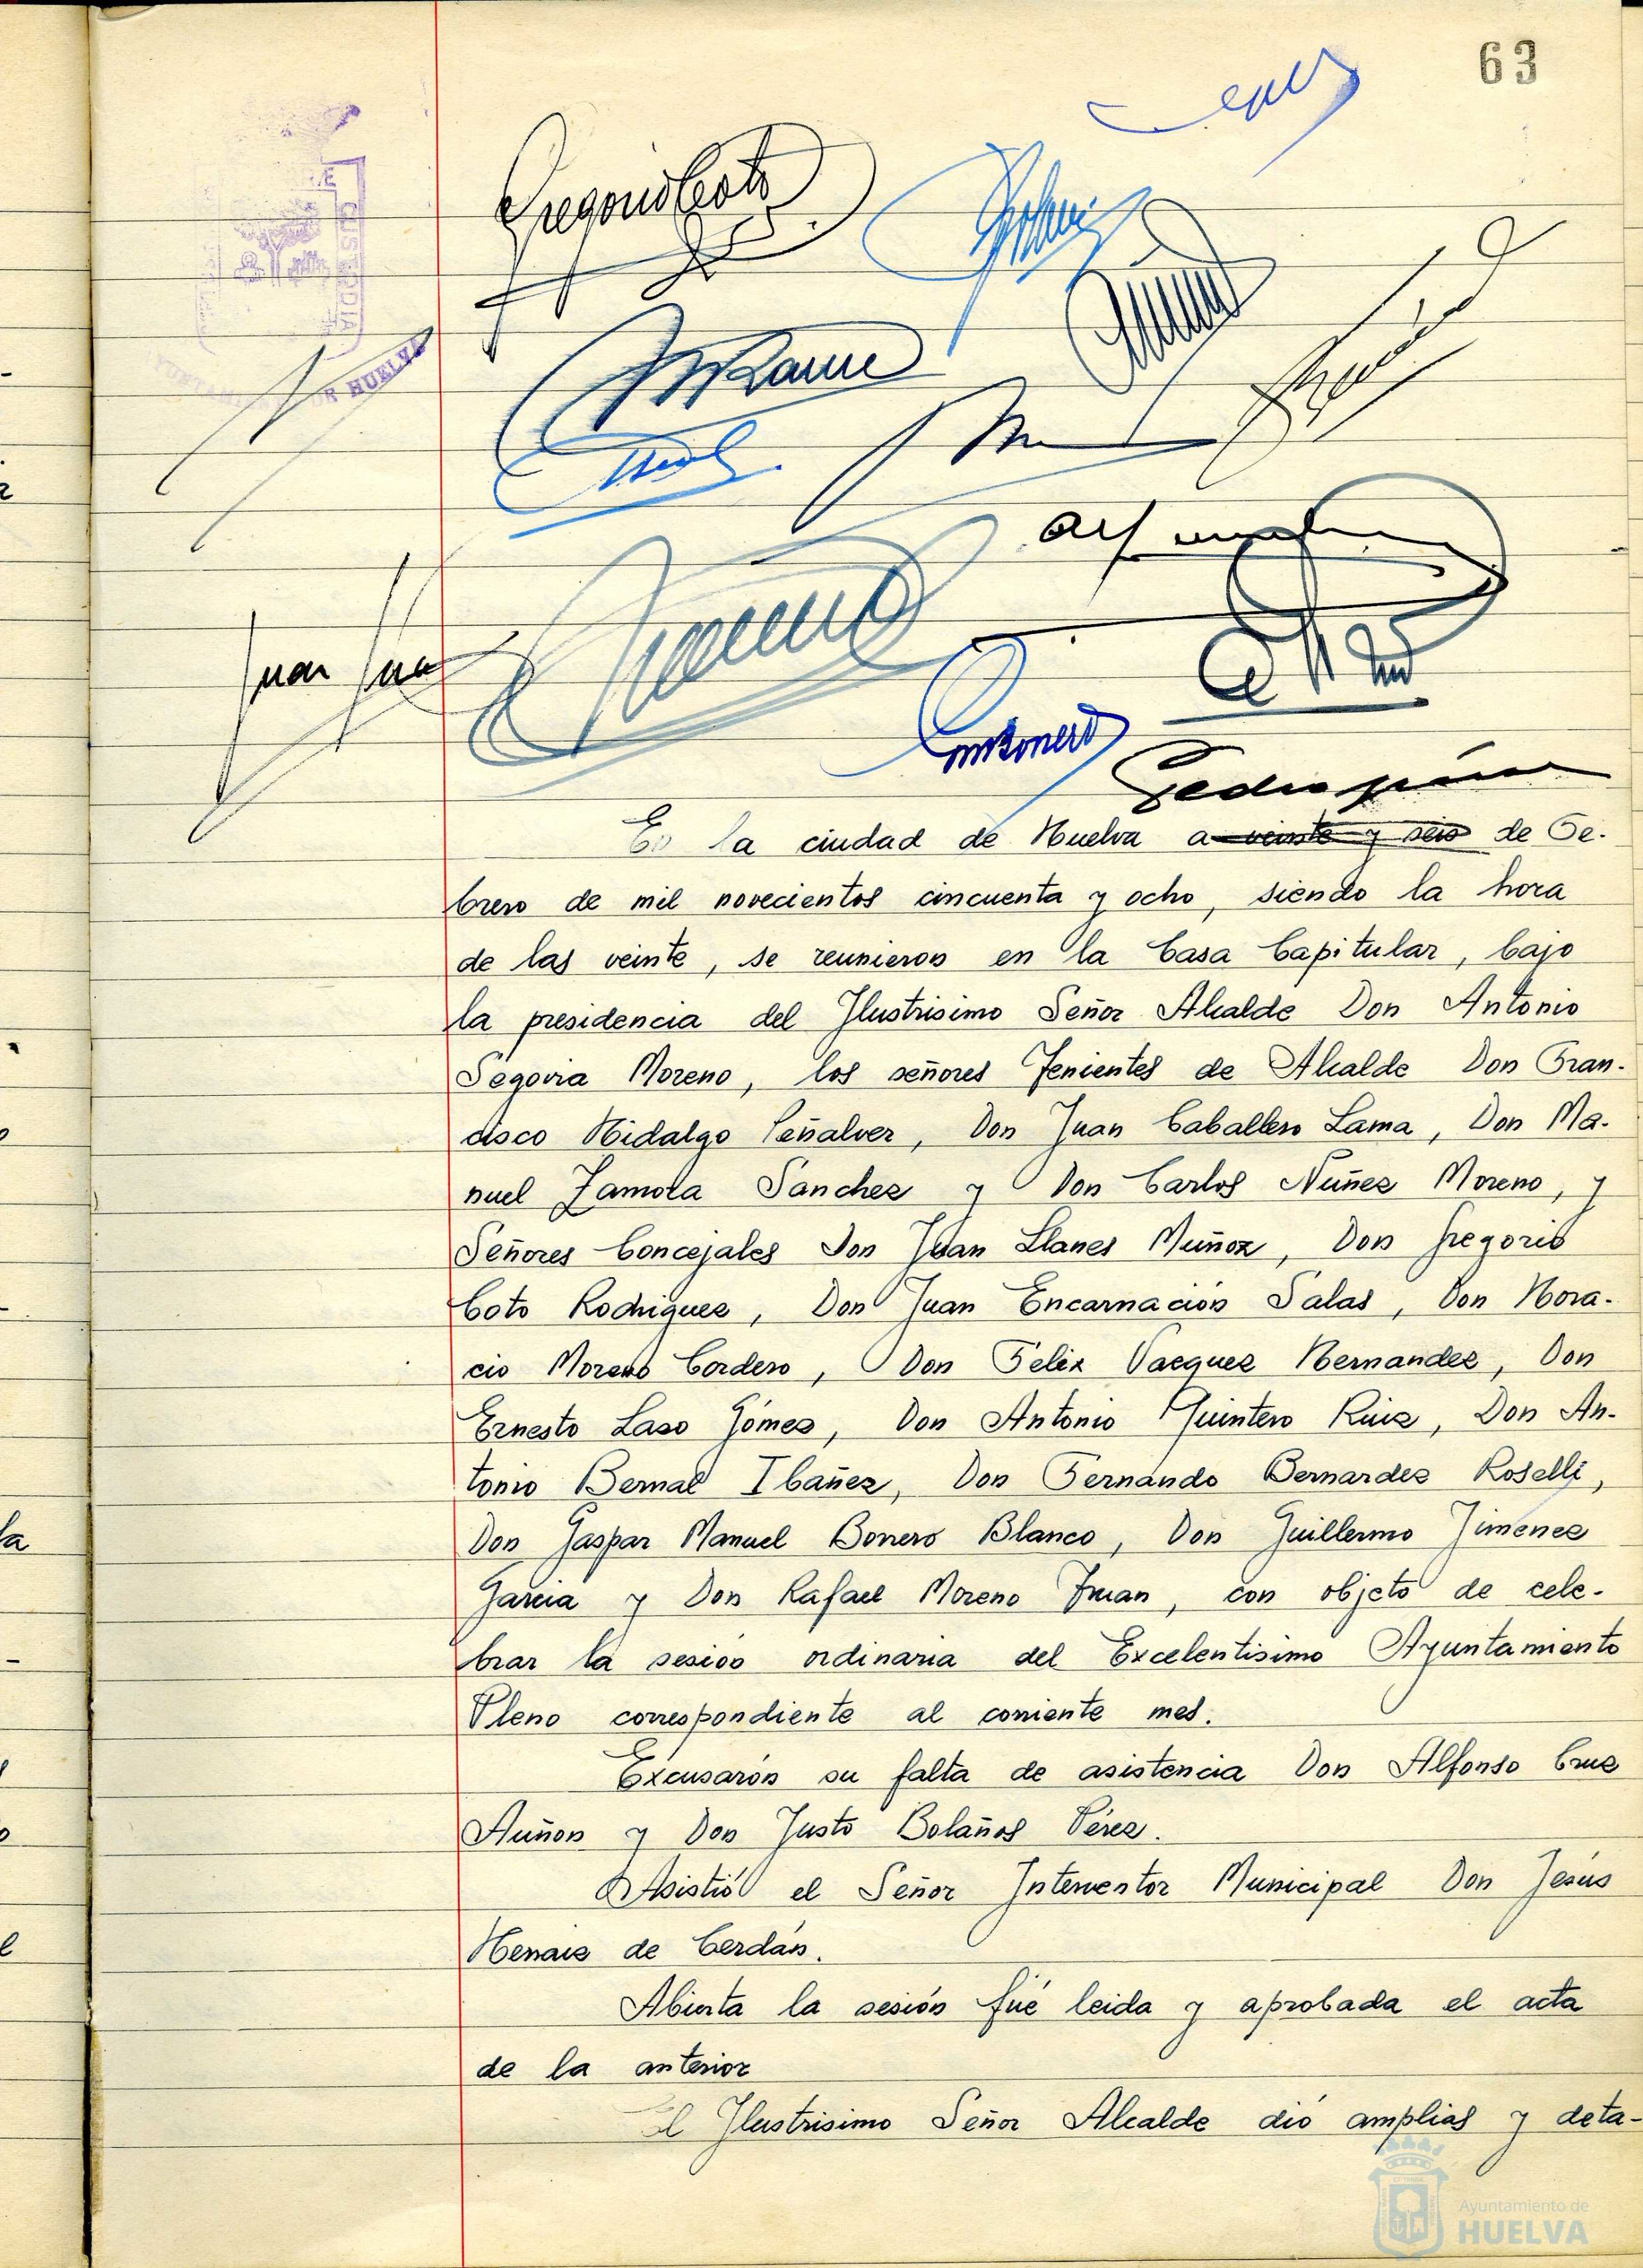 63
Gregorio Coto
Juan
Pedro
En la ciudad de Huelva a veinte y seis de Fe-
brero de mil novecientos cincuenta y ocho, siendo la hora
de las veinte, se reunieron en la Casa Capitular, bajo
la presidencia del Ilustrisimo Señor Alcalde Don Antonio
Segovia Moreno, los señores Tenientes de Alcalde Don Fran-
cisco Hidalgo Peñalver, Don Juan Caballero Lama, Don Ma-
nuel Zamora Sanchez y Don Carlos Núñez Moreno, y
Señores Concejales Don Juan Llanes Muñoz, Don Gregorio
Coto Rodriguez, Don Juan Encarnación Salas, Don Hora-
cio Moreno Cordero, Don Felix Vazquez Hernandez, Don
Ernesto Laso Gómez, Don Antonio Quintero Ruiz, Don An-
tonio Bernal Ibañez, Don Fernando Bernardez Roselli,
Don Gaspar Manuel Bonero Blanco, Don Guillermo Jimenez
Garcia y Don Rafael Moreno, con objeto de cele-
brar la sesión ordinaria del Excelentisimo Ayuntamiento
Pleno correspondiente al corriente mes.
Excusaron su falta de asistencia Don Alfonso Cruz
Auñon y Don Justo Bolaños Pérez.
Asistió el Señor Interventor Municipal Don Jesús
de Cerdán.
Abierta la sesión fué leida y aprobada el acta
de la anterior
El Ilustrisimo Señor Alcalde dió amplias y deta-
CUSTODIA
HUELVA
Ayuntamiento de
HUELVA